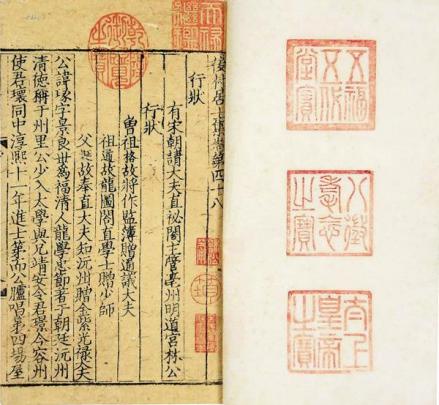 五福
五代
堂寶
八徵
耄念
之寶
太上
皇帝
之寶
天祿繼鑑
乾隆御覽之寶
村居士集卷第四十八
行狀
有宋朝請大夫直祕閣主管亳州明道宮林公
行狀
曾祖格故將作監簿贈通議大夫
祖遹故龍圖閣直學士贈少師
父埏故奉直大夫知沅州贈金紫光祿大夫
公諱瑑字景良世為福清人龍學忠節著于朝廷沅州
清德稱于州里公少入太學與兄靖安令君景今容州
使君環同中淳熙十一年進士第而公臚唱第四場屋